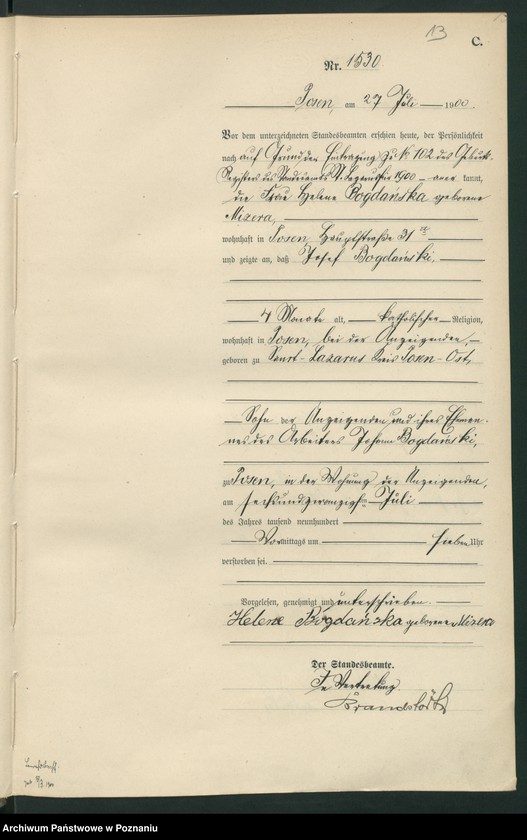 13
C.
Nr. 1530.
Posen, am 27 Juli 1900.
Vor dem unterzeichneten Standesbeamten erschien heute, der Persönlichkeit
nach auf Grund der Eintragung zu No 102 des Geburts-
Registers des Standesamts St. Lazarus für 1900 kannt,
die Frau Helene Bogdańska geborene
Mizera,
wohnhaft in Posen, Hauptstraße 31
und zeigte an, daß Josef Bogdański,
4 Monate alt, katholischer Religion,
wohnhaft in Posen, bei der Anzeigenden,
geboren zu Sankt-Lazarus Kreis Posen-Ost,
Sohn der Anzeigenden und ihres Eheman-
nes des Arbeiters Johann Bogdański,
zu Posen, in der Wohnung der Anzeigenden,
am sechsundzwanzigsten Juli
des Jahres tausend neunhundert
Vormittags um sieben Uhr
verstorben sei.
Vorgelesen, genehmigt und unterschrieben.
Helene Bogdańska geborene Mizera
Der Standesbeamte.
In Vertretung.
Archiwum Państwowe w Poznaniu